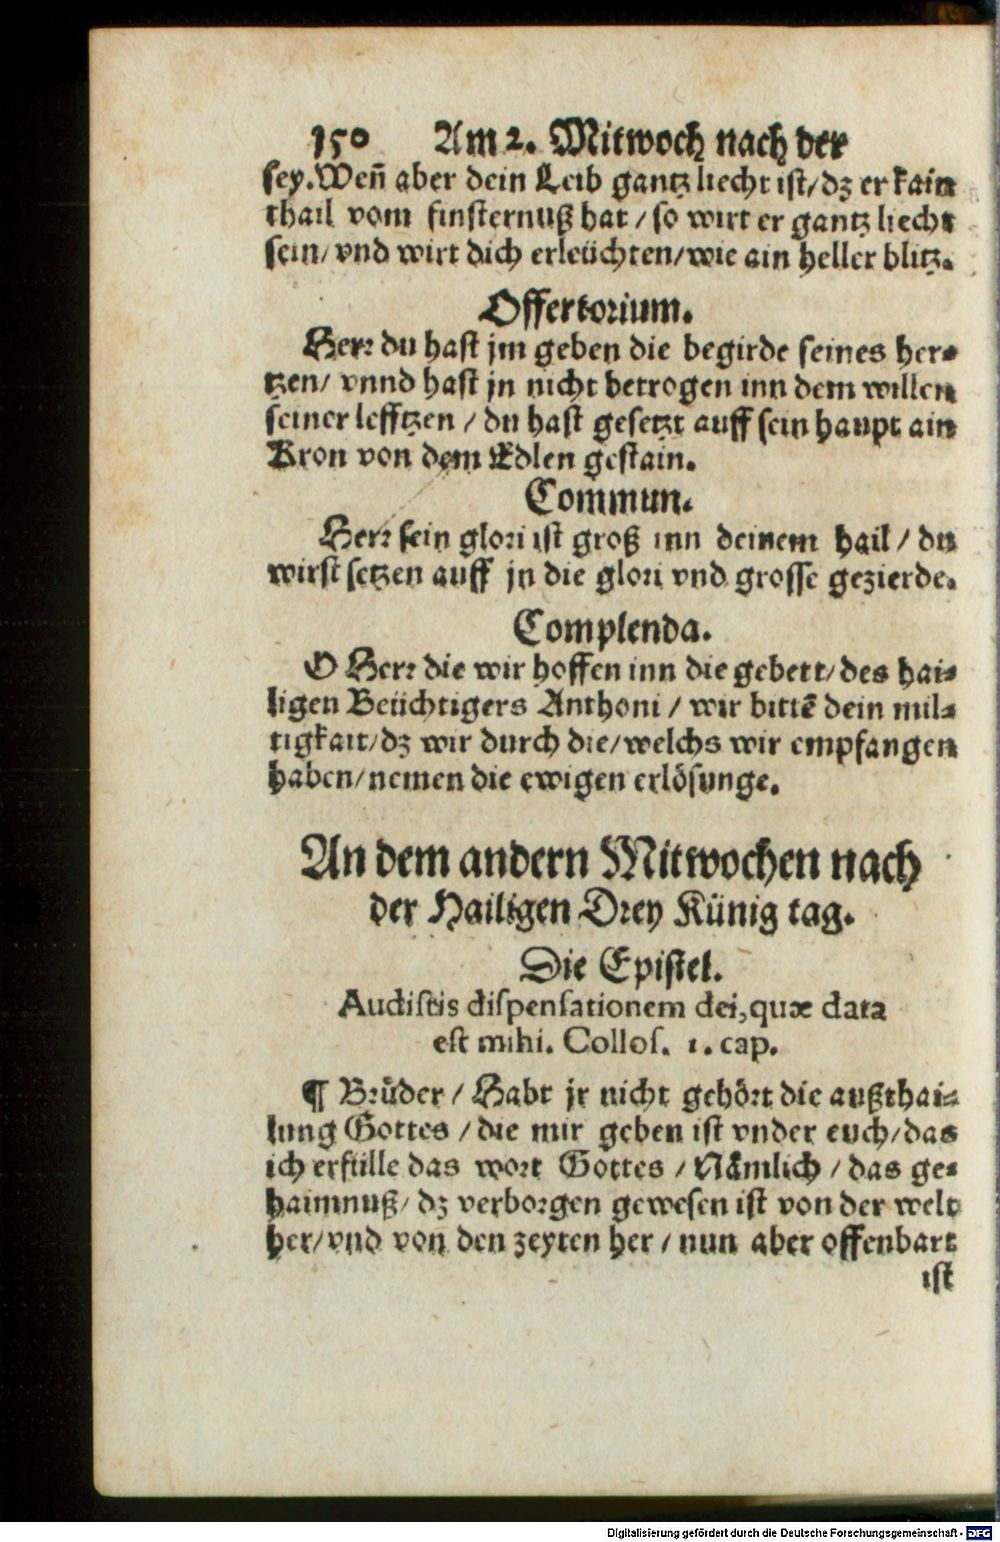 150 Am 2. Mitwoch nach der
sey. Weñ aber dein Leib gantz liecht ist/ dz er kain
thail vom finsternuß hat / so wirt er gantz liecht
sein/ vnd wirt dich erleüchten/ wie ain heller blitz.
Offertorium.
Herr du hast jm geben die begirde seines her-
tzen/ vnnd hast jn nicht betrogen inn dem willen
seiner lefftzen / du hast gesetzt auff sein haupt ain
Kron von dem Edlen gestain.
Commun.
Herr sein glori ist groß inn deinem hail / du
wirst setzen auff jn die glori vnd grosse gezierde.
Complenda.
O Herr die wir hoffen inn die gebett/ des hai-
ligen Beüchtigers Anthoni / wir bittē dein mil-
tigkait/ dz wir durch die/ welchs wir empfangen
haben/ nemen die ewigen erlösunge.
An dem andern Mitwochen nach
der Hailigen Drey Künig tag.
Die Epistel.
Audistis dispensationem dei, quæ data
est mihi. Collos. 1. cap.
¶ Brůder / Habt jr nicht gehört die außthai-
lung Gottes / die mir geben ist vnder euch/ das
ich erfülle das wort Gottes / Nämlich / das ge-
haimnuß/ dz verborgen gewesen ist von der welt
her/ vnd von den zeyten her / nun aber offenbart
ist
Digitalisierung gefördert durch die Deutsche Forschungsgemeinschaft - DFG